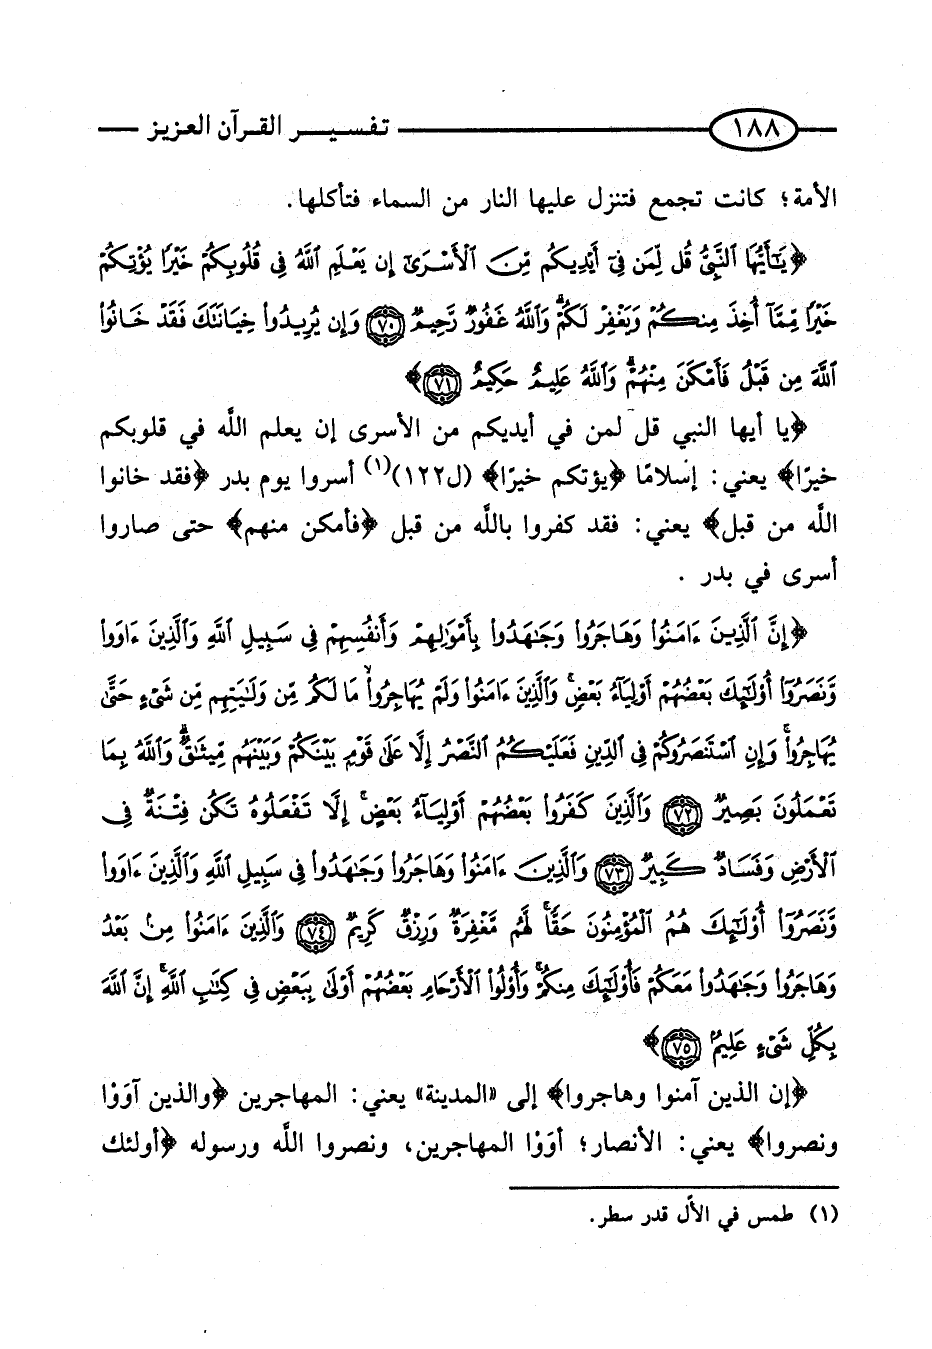 ١٨٨ تفسير القرآن العزيز
الأمة؛ كانت تجمع فتنزل عليها النار من السماء فتأكلها.
﴿يَٰٓأَيُّهَا ٱلنَّبِىُّ قُل لِّمَن فِىٓ أَيْدِيكُم مِّنَ ٱلْأَسْرَىٰٓ إِن يَعْلَمِ ٱللَّهُ فِى قُلُوبِكُمْ خَيْرًا يُؤْتِكُمْ
خَيْرًا مِّمَّآ أُخِذَ مِنكُمْ وَيَغْفِرْ لَكُمْ ۗ وَٱللَّهُ غَفُورٌ رَّحِيمٌ ٧٠ وَإِن يُرِيدُوا۟ خِيَانَتَكَ فَقَدْ خَانُوا۟
ٱللَّهَ مِن قَبْلُ فَأَمْكَنَ مِنْهُمْ ۗ وَٱللَّهُ عَلِيمٌ حَكِيمٌ ٧١﴾
﴿يا أيها النبي قل لمن في أيديكم من الأسرى إن يعلم اللَّه في قلوبكم
خيرًا﴾ يعني: إسلامًا ﴿يؤتكم خيرًا﴾ (ل١٢٢)(١) أسروا يوم بدر ﴿فقد خانوا
اللَّه من قبل﴾ يعني: فقد كفروا باللَّه من قبل ﴿فأمكن منهم﴾ حتى صاروا
أسرى في بدر .
﴿إِنَّ ٱلَّذِينَ ءَامَنُوا۟ وَهَاجَرُوا۟ وَجَٰهَدُوا۟ بِأَمْوَٰلِهِمْ وَأَنفُسِهِمْ فِى سَبِيلِ ٱللَّهِ وَٱلَّذِينَ ءَاوَوا۟
وَّنَصَرُوٓا۟ أُو۟لَٰٓئِكَ بَعْضُهُمْ أَوْلِيَآءُ بَعْضٍ ۚ وَٱلَّذِينَ ءَامَنُوا۟ وَلَمْ يُهَاجِرُوا۟ مَا لَكُم مِّن وَلَٰيَتِهِم مِّن شَىْءٍ حَتَّىٰ
يُهَاجِرُوا۟ ۚ وَإِنِ ٱسْتَنصَرُوكُمْ فِى ٱلدِّينِ فَعَلَيْكُمُ ٱلنَّصْرُ إِلَّا عَلَىٰ قَوْمٍۭ بَيْنَكُمْ وَبَيْنَهُم مِّيثَٰقٌ ۗ وَٱللَّهُ بِمَا
تَعْمَلُونَ بَصِيرٌ ٧٢ وَٱلَّذِينَ كَفَرُوا۟ بَعْضُهُمْ أَوْلِيَآءُ بَعْضٍ ۚ إِلَّا تَفْعَلُوهُ تَكُن فِتْنَةٌ فِى
ٱلْأَرْضِ وَفَسَادٌ كَبِيرٌ ٧٣ وَٱلَّذِينَ ءَامَنُوا۟ وَهَاجَرُوا۟ وَجَٰهَدُوا۟ فِى سَبِيلِ ٱللَّهِ وَٱلَّذِينَ ءَاوَوا۟
وَّنَصَرُوٓا۟ أُو۟لَٰٓئِكَ هُمُ ٱلْمُؤْمِنُونَ حَقًّا ۚ لَّهُم مَّغْفِرَةٌ وَرِزْقٌ كَرِيمٌ ٧٤ وَٱلَّذِينَ ءَامَنُوا۟ مِنۢ بَعْدُ
وَهَاجَرُوا۟ وَجَٰهَدُوا۟ مَعَكُمْ فَأُو۟لَٰٓئِكَ مِنكُمْ ۚ وَأُو۟لُوا۟ ٱلْأَرْحَامِ بَعْضُهُمْ أَوْلَىٰ بِبَعْضٍ فِى كِتَٰبِ ٱللَّهِ ۗ إِنَّ ٱللَّهَ
بِكُلِّ شَىْءٍ عَلِيمٌۢ ٧٥﴾
﴿إن الذين آمنوا وهاجروا﴾ إلى «المدينة» يعني: المهاجرين ﴿والذين آوَوْا
ونصروا﴾ يعني: الأنصار؛ أوَوْا المهاجرين، ونصروا اللَّه ورسوله ﴿أولئك
(١) طمس في الأل قدر سطر.